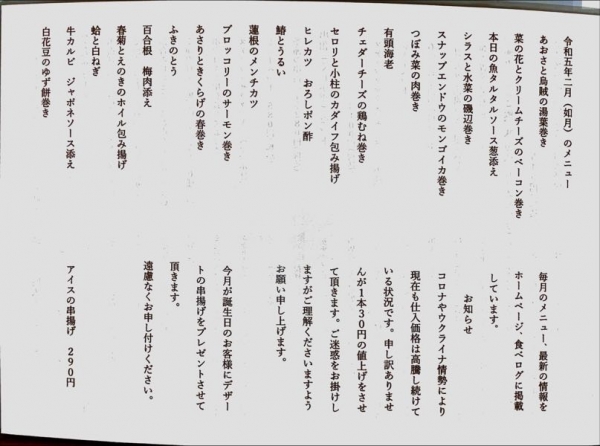 令和五年二月（如月）のメニュー
あおさと烏賊の湯葉巻き
菜の花とクリームチーズのベーコン巻き
本日の魚タルタルソース葱添え
シラスと水菜の磯辺巻き
スナップエンドウのモンゴイカ巻き
つぼみ菜の肉巻き
有頭海老
チェダーチーズの鶏むね巻き
セロリと小柱のカダイフ包み揚げ
ヒレカツ　おろしポン酢
鰆とうるい
蓮根のメンチカツ
ブロッコリーのサーモン巻き
あさりときくらげの春巻き
ふきのとう
百合根　梅肉添え
春菊とえのきのホイル包み揚げ
蛤と白ねぎ
牛カルビ　ジャポネソース添え
白花豆のゆず餅巻き
毎月のメニュー、最新の情報を
ホームページ、食べログに掲載
しています。
お知らせ
コロナやウクライナ情勢により
現在も仕入価格は高騰し続けて
いる状況です。申し訳ありませ
んが１本３０円の値上げをさせ
て頂きます。ご迷惑をお掛けし
ますがご理解くださいますよう
お願い申し上げます。
今月が誕生日のお客様にデザー
トの串揚げをプレゼントさせて
頂きます。
遠慮なくお申し付けください。
アイスの串揚げ　２９０円